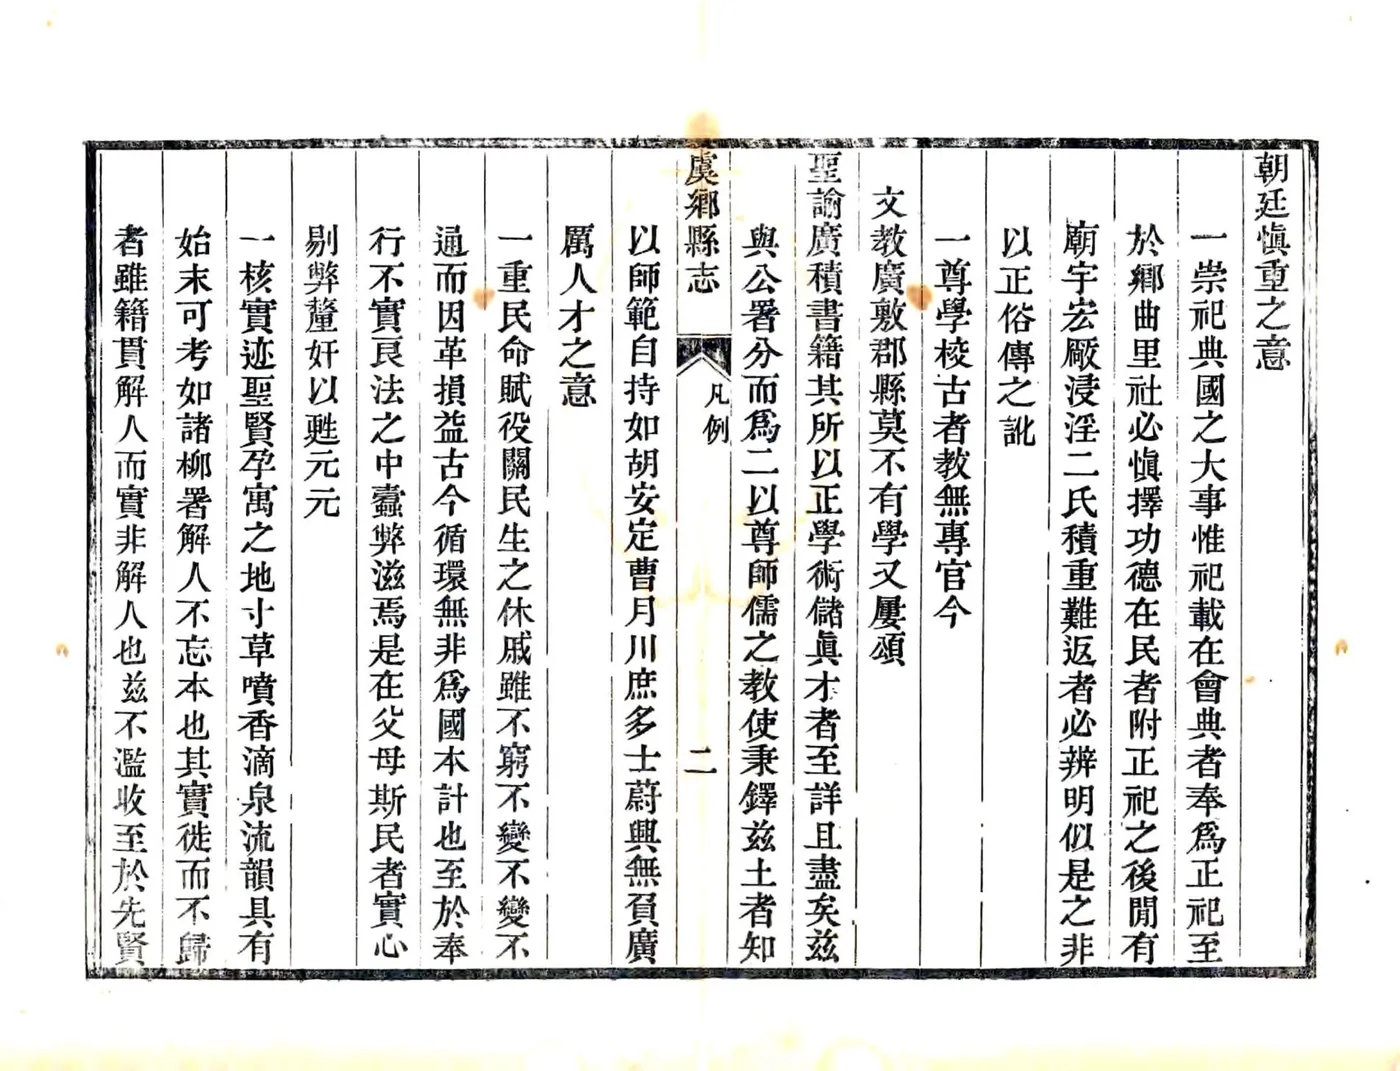 朝廷愼重之意
一崇祀典國之大事惟祀載在會典者奉爲正祀至
於鄉曲里社必愼擇功德在民者附正祀之後閒有
廟宇宏厰浸淫二氏積重難返者必辨明似是之非
以正俗傳之訛
一尊學校古者教無專官今
文教廣敷郡縣莫不有學又屢頌
聖諭廣積書籍其所以正學術儲眞才者至詳且盡矣兹
與公署分而爲二以尊師儒之教使秉鐸兹土者知
虞鄉縣志
凡例
二
以師範自持如胡安定曹月川庶多士蔚興無負廣
厲人才之意
一重民命賦役關民生之休戚雖不窮不變不變不
通而因革損益古今循環無非爲國本計也至於奉
行不實良法之中蠹弊滋焉是在父母斯民者實心
剔弊釐奸以甦元元
一核實迹聖賢孕寓之地寸草噴香滴泉流韻具有
始末可考如諸柳署解人不忘本也其實徙而不歸
者雖籍貫解人而實非解人也兹不濫收至於先賢